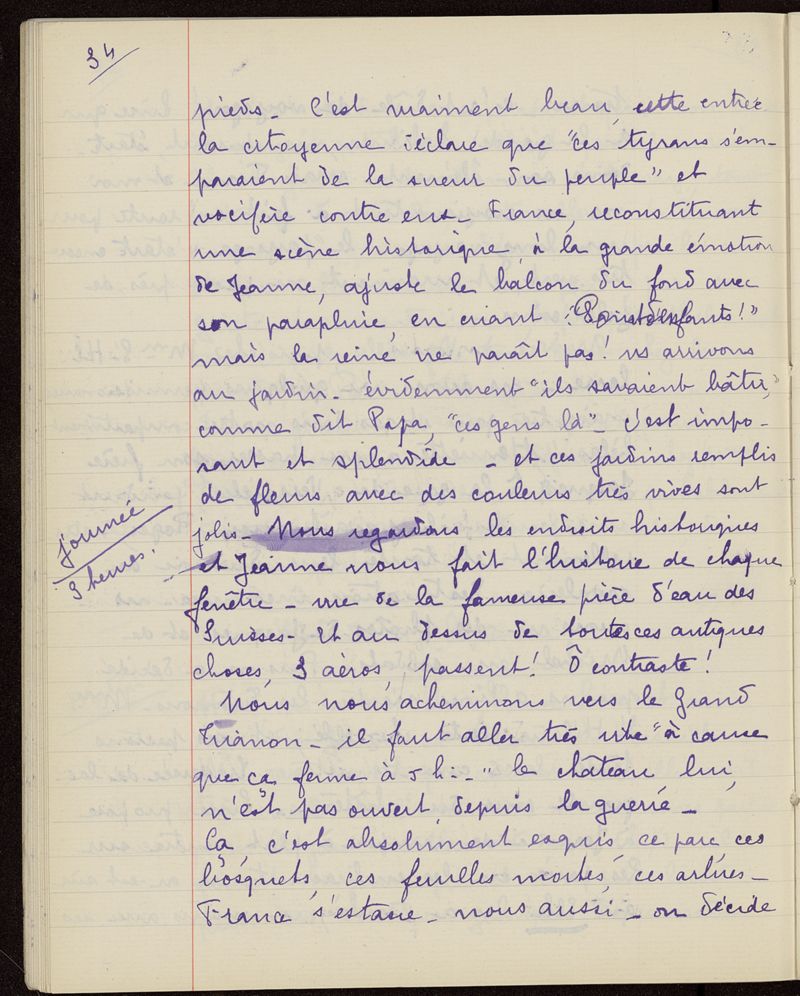 34
pieds - C'est vraiment beau, cette entrée
la citoyenne déclare que "ces tyrans s'em-
paraient de la sueur du peuple" et
vocifère contre eux - France, reconstituant
une scène historique, à la grande émotion
de Jeanne, ajuste le balcon du fond avec
son parapluie en criant : "Point d'enfants!"
mais la reine ne paraît pas! ns arrivons
au jardin - évidemment "ils savaient bâtir,"
comme dit Papa, "ces gens là" - c'est impo-
sant et splendide - et ces jardins remplis
de fleurs avec des couleurs très vives sont
jolis - Nous regardons les endroits historiques
et Jeanne nous fait l'histoire de chaque
fenêtre - vue de la fameuse pièce d'eau des
Suisses - Et au dessus de toutes ces antiques
choses, 3 aéros, passent! Ô contraste!
Nous nous acheminons vers le Grand
Trianon - il faut aller très vite "à cause
que ça ferme à 5 h : - " le château lui,
n'est pas ouvert, depuis la guerre -
Ça c'est absolument exquis, ce parc, ces
bosquets, ces feuilles mortes, ces arbres -
France s'extasie - nous aussi - on décide
journée
3 heures.